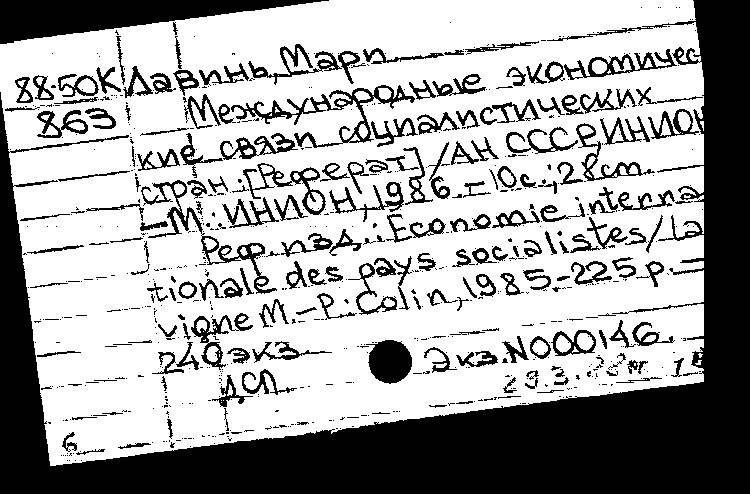 88-50К Лавинь, Мари
863 Международные экономичес-
кие связи социалистических
стран: [Реферат] / АН СССР, ИНИОН
-М.: ИНИОН, 1986.-10с.; 28cm.
Реф. изд.: Economie interna
tionale des pays socialistes/La
vigne M.-P.: Colin, 1985.-225p.=
240 экз
ДСП. Экз. N000146.
29.3.88
6